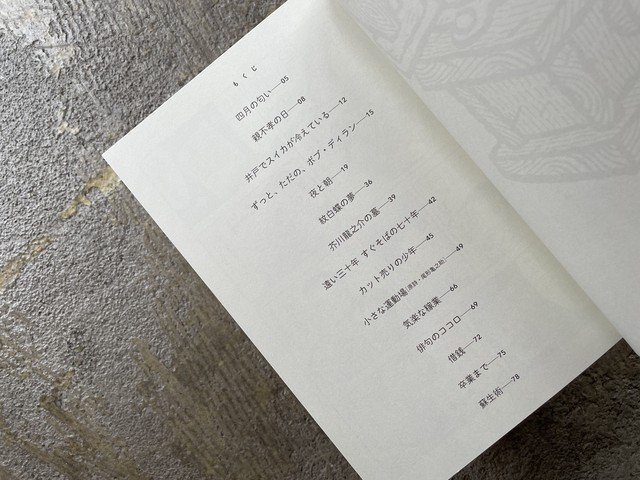 もくじ
四月の匂い──05
親不孝の日──08
井戸でスイカが冷えている──12
ずっと、ただの、ボブ・ディラン──15
夜と朝──19
紋白蝶の夢──36
芥川龍之介の墓──39
遠い三十年 すぐそばの七十年──42
カット売りの少年──45
小さな運動場(原詩・尾形亀之助)──49
気楽な稼業──66
俳句のココロ──69
借銭──72
卒業まで──75
蘇生術──78